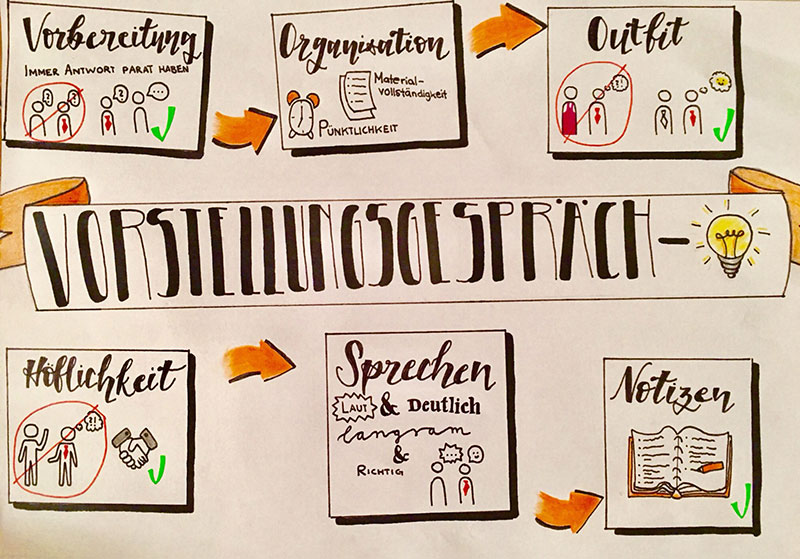 Vorbereitung
IMMER ANTWORT PARAT HABEN
Organisation
Material-
vollständigkeit
PÜNKTLICHKEIT
Outfit
VORSTELLUNGSGESPRÄCH-
Höflichkeit
Sprechen
LAUT & Deutlich
langsam
&
RICHTIG
Notizen